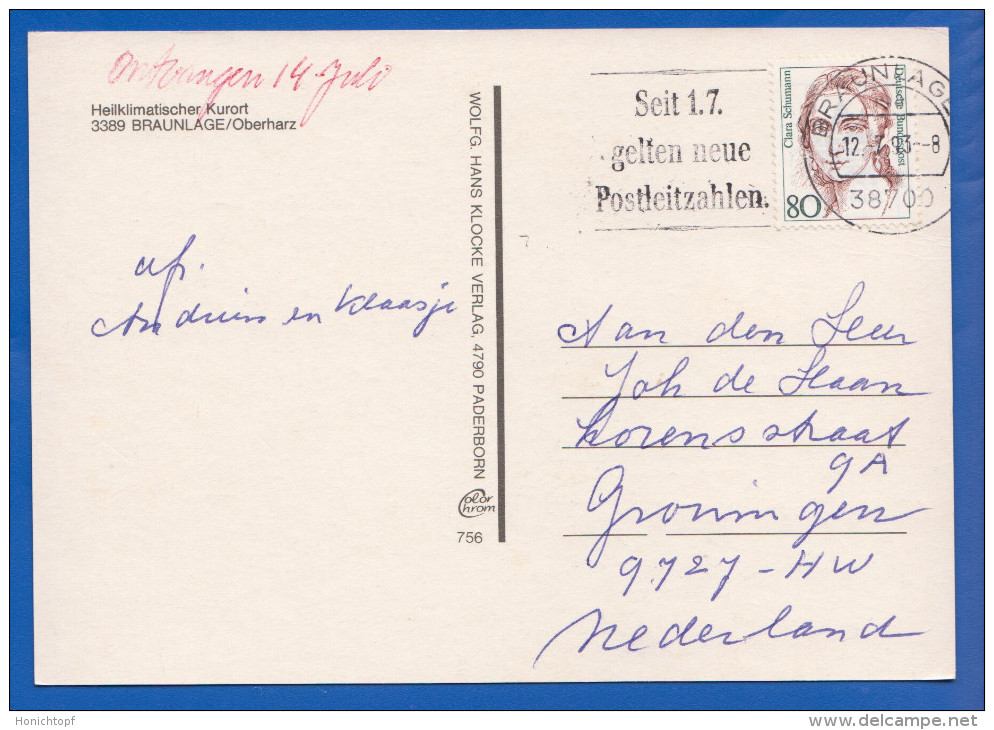 Ontvangen 14 Juli
Heilklimatischer Kurort
3389 BRAUNLAGE/Oberharz
afz.
Andries en Klaasje
WOLFG. HANS KLOCKE VERLAG, 4790 PADERBORN
Color Chrom
756
Seit 1.7.
gelten neue
Postleitzahlen.
Clara Schumann
Deutsche Bundespost
80
BRAUNLAGE
12.-7.93--8
38700
Aan den Heer
Joh de Haan
Lorensstraat
9A
Groningen
9727-HW
Nederland
Honichtopf
www.delcampe.net